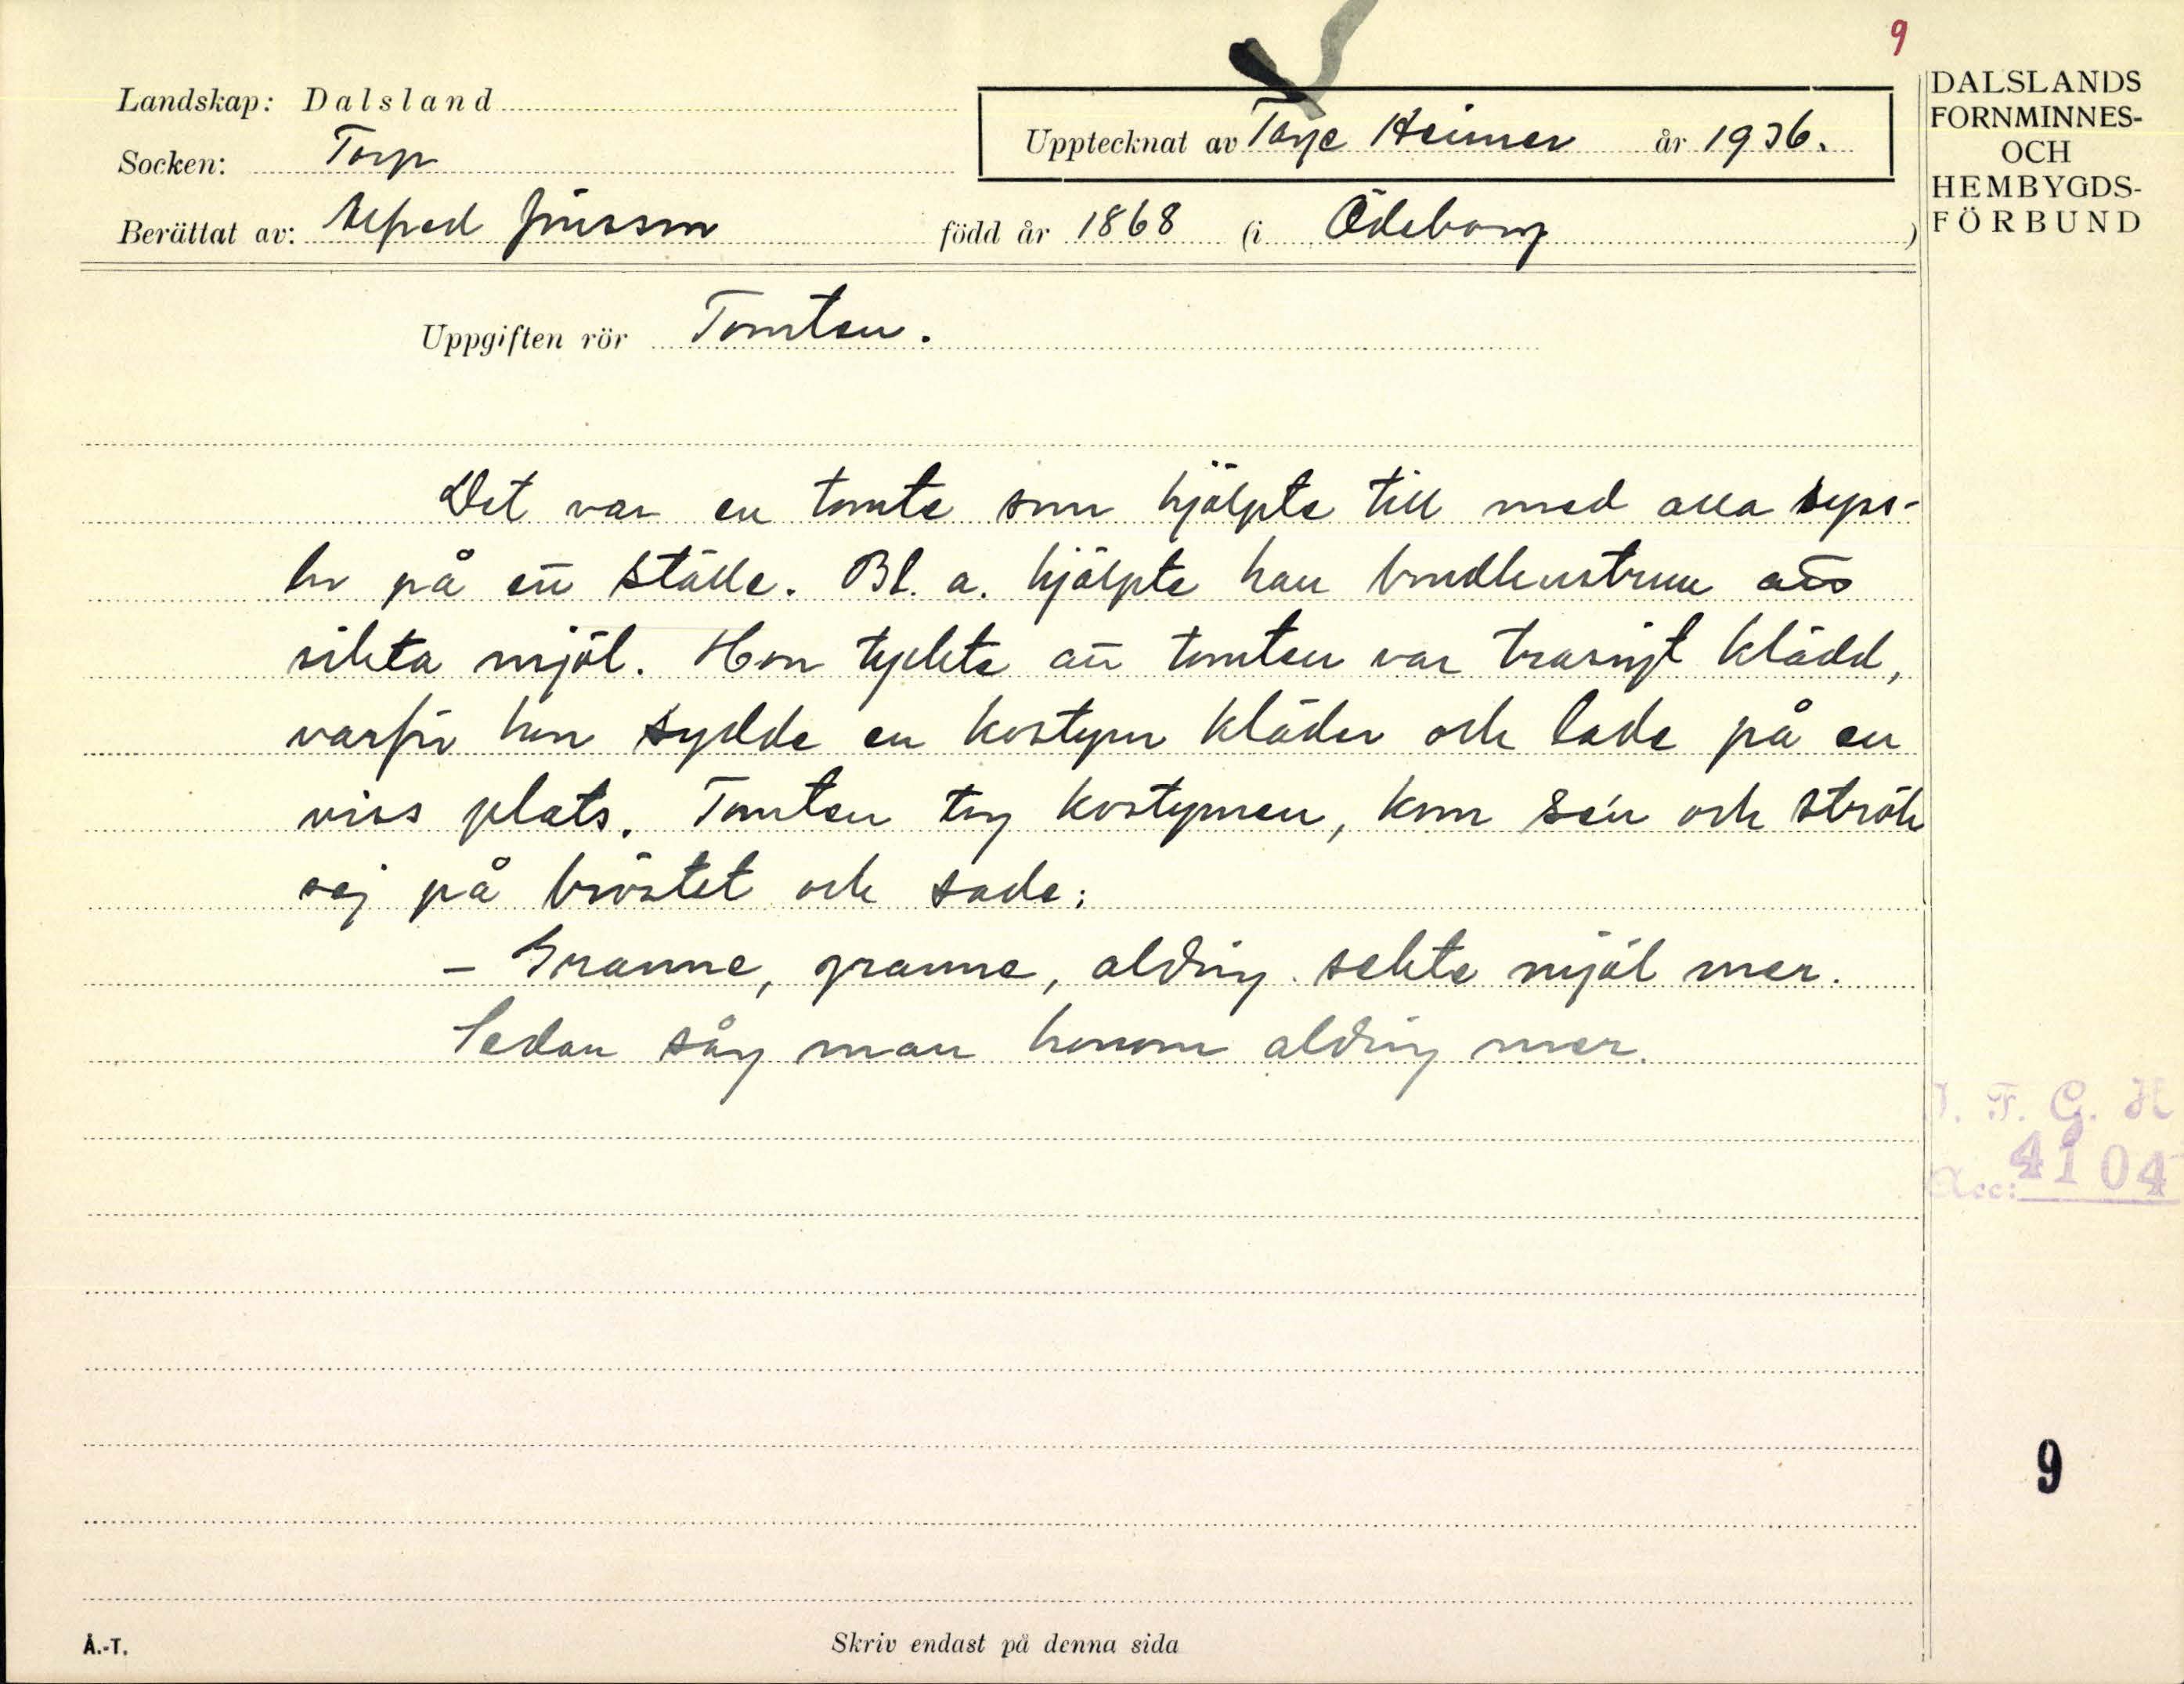 9
DALSLANDS
FORNMINNES-
OCH
HEMBYGDS-
FÖRBUND
Landskap: Dalsland
Upptecknat av Tage Heimer år 1936.
Socken: Torp
Berättat av: Alfred Jonsson född år 1868 (i Ödeborg )
Uppgiften rör Tomten.
Det var en tomte som hjälpte till med alla syss-
lor på ett ställe. Bl. a. hjälpte han bondhustrun att
sikta mjöl. Hon tyckte att tomten var trasigt klädd,
varför hon sydde en kostym kläder och lade på en
viss plats. Tomten tog kostymen, kom sén och strök
sej på bröstet och sade:
- Granne, granne, aldrig sekte mjöl mer.
Sedan såg man honom aldrig mer.
I. F. G. H
Acc: 4104
9
Å.-T.
Skriv endast på denna sida